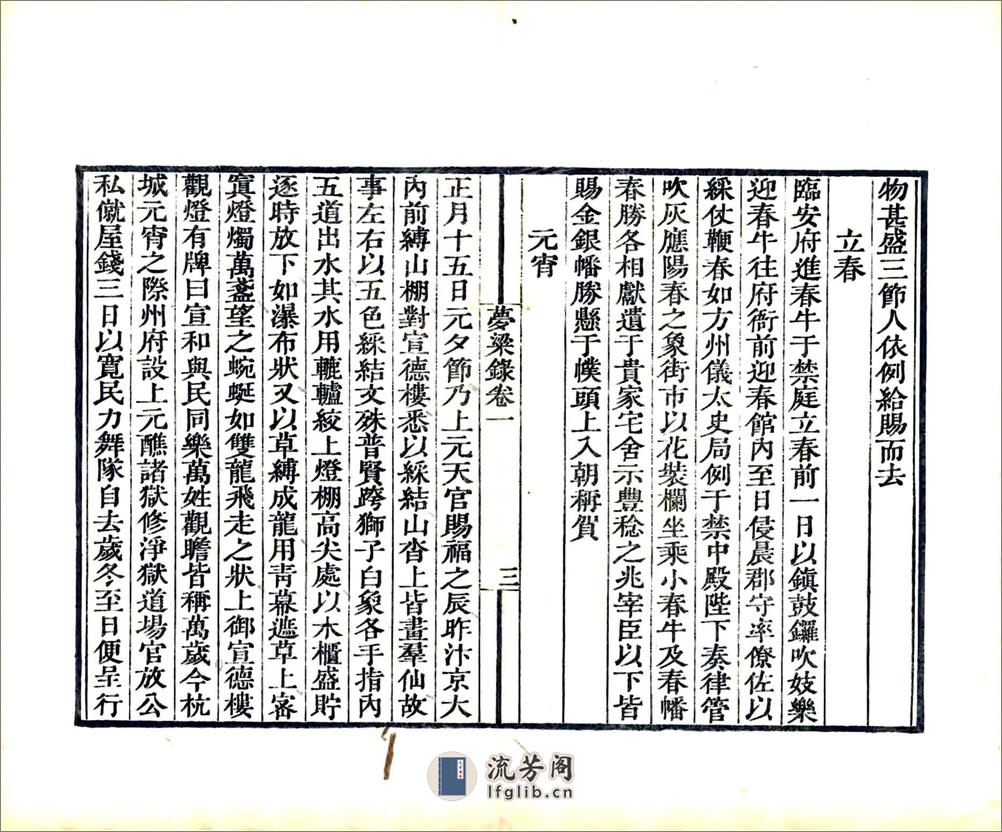 物甚盛三節人依例給賜而去
立春
臨安府進春牛于禁庭立春前一日以鎮鼓鑼吹妓樂
迎春牛往府衙前迎春館內至日侵晨郡守率僚佐以
綵仗鞭春如方州儀太史局例于禁中殿陛下奏律管
吹灰應陽春之象街市以花裝欄坐乘小春牛及春幡
春勝各相獻遺于貴家宅舍示豐稔之兆宰臣以下皆
賜金銀幡勝懸于幞頭上入朝稱賀
元宵
夢粱錄卷一
三
正月十五日元夕節乃上元天官賜福之辰昨汴京大
內前縛山棚對宣德樓悉以綵結山沓上皆畫羣仙故
事左右以五色綵結文殊普賢跨獅子白象各手指內
五道出水其水用轆轤絞上燈棚高尖處以木櫃盛貯
逐時放下如瀑布狀又以草縛成龍用青幕遮草上密
寘燈燭萬盞望之蜿蜒如雙龍飛走之狀上御宣德樓
觀燈有牌曰宣和與民同樂萬姓觀瞻皆稱萬歲今杭
城元宵之際州府設上元醮諸獄修淨獄道場官放公
私僦屋錢三日以寬民力舞隊自去歲冬至日便呈行
流芳阁
lfglib.cn